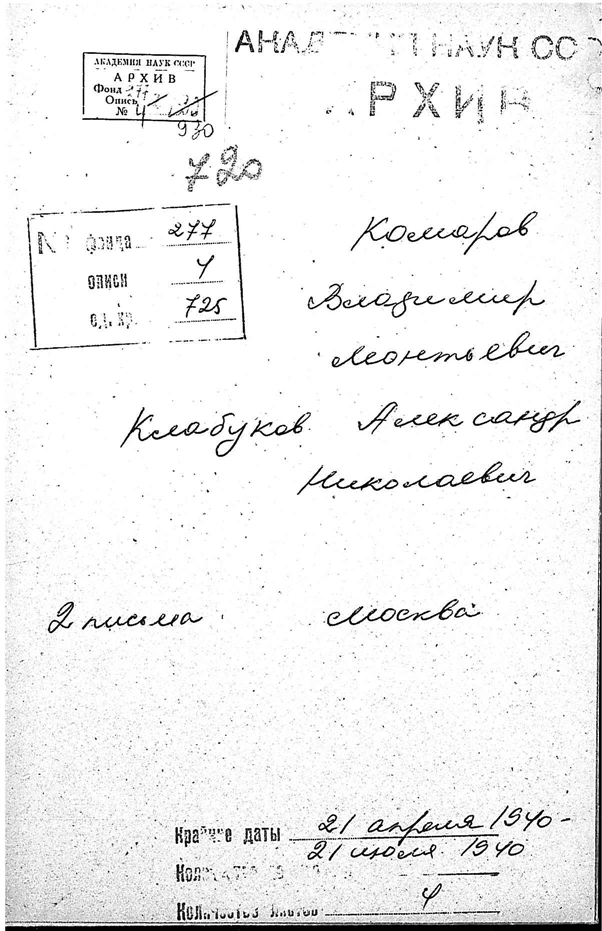 АКАДЕМИЯ НАУК СССР
АРХИВ
Фонд 277
Опись
№ 4
930
АКАДЕМИЯ НАУК СССР
АРХИВ
720
№ фонда 277
описи 4
ед. хр. 725
Комаров
Владимир
Леонтьевич
Клабуков Александр
Николаевич
2 письма Москва
Крайние даты 21 апреля 1940 -
21 июля 1940
Количество листов 4